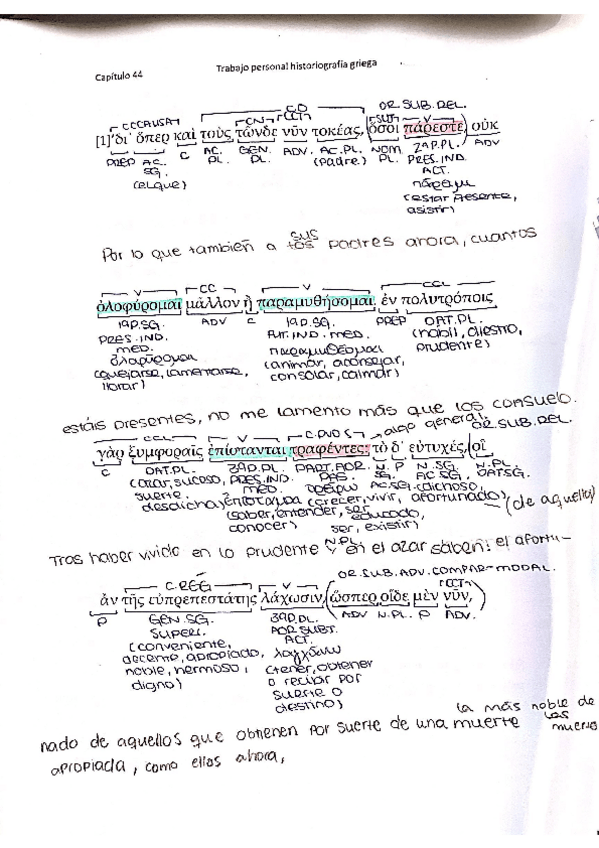 Trabajo personal historiografía griega
Capítulo 44
CCCAUSA CN CCT CD SUJ OR.SUB.REL. V
[1] 'δι' ὅπερ καὶ τοὺς τῶνδε νῦν τοκέας, (ὅσοι πάρεστε, οὐκ
PREP AC. SG. C AC. PL. GEN. PL. ADV. AC. PL. (padre) NOM. PL. 2ªP.PL. ADV
(el que) PRES. IND.
ACT.
πάρειμι
(estar presente,
asistir)
sus
Por lo que también a los padres ahora, cuantos
V CC V CCL
ὀλοφύρομαι μᾶλλον ἢ παραμυθήσομαι. ἐν πολυτρόποις
1ªP.SG. ADV C 1ªP.SG. PREP DAT. PL.
PRES. IND. FUT. IND. MED. (hábil, diestro,
MED. παραμυθέομαι prudente)
(quejarse, lamentarse, (animar, aconsejar,
llorar) consolar, calmar)
estáis presentes, no me lamento más que los consuelo.
CCL V C.PVOS algo general. OR.SUB.REL.
γὰρ ξυμφοραῖς ἐπίστανται τραφέντες: τὸ δ' εὐτυχές, (οἳ
C DAT. PL. 3ªP.PL. PART. AOR. N. P N. SG. N. PL
(azar, suceso, PRES. IND. PAS. SG. AC. SG.
suerte, MED. τρέφω AC. SG. (dichoso,
desdicha) (crecer, vivir, afortunado) (de aquello)
(saber, entender, ser educado,
conocer) ser, existir)
N. PL
Tras haber vivido en lo prudente y en el azar saben: el afortu-
C.REG V OR.SUB.ADV.COMPAR-MODAL. CCT
ἂν τῆς εὐπρεπεστάτης λάχωσιν, (ὥσπερ οἵδε μὲν νῦν,
P GEN. SG. 3ªP.PL. ADV N. PL. P ADV.
SUPERL. AOR. SUBJ.
(conveniente, ACT.
decente, apropiado, λαγχάνω
noble, hermoso, (tener, obtener
digno) o recibir por
suerte o
destino)
la más noble de
las muertes
nado de aquellos que obtienen por suerte de una muerte
apropiada, como ellos ahora,